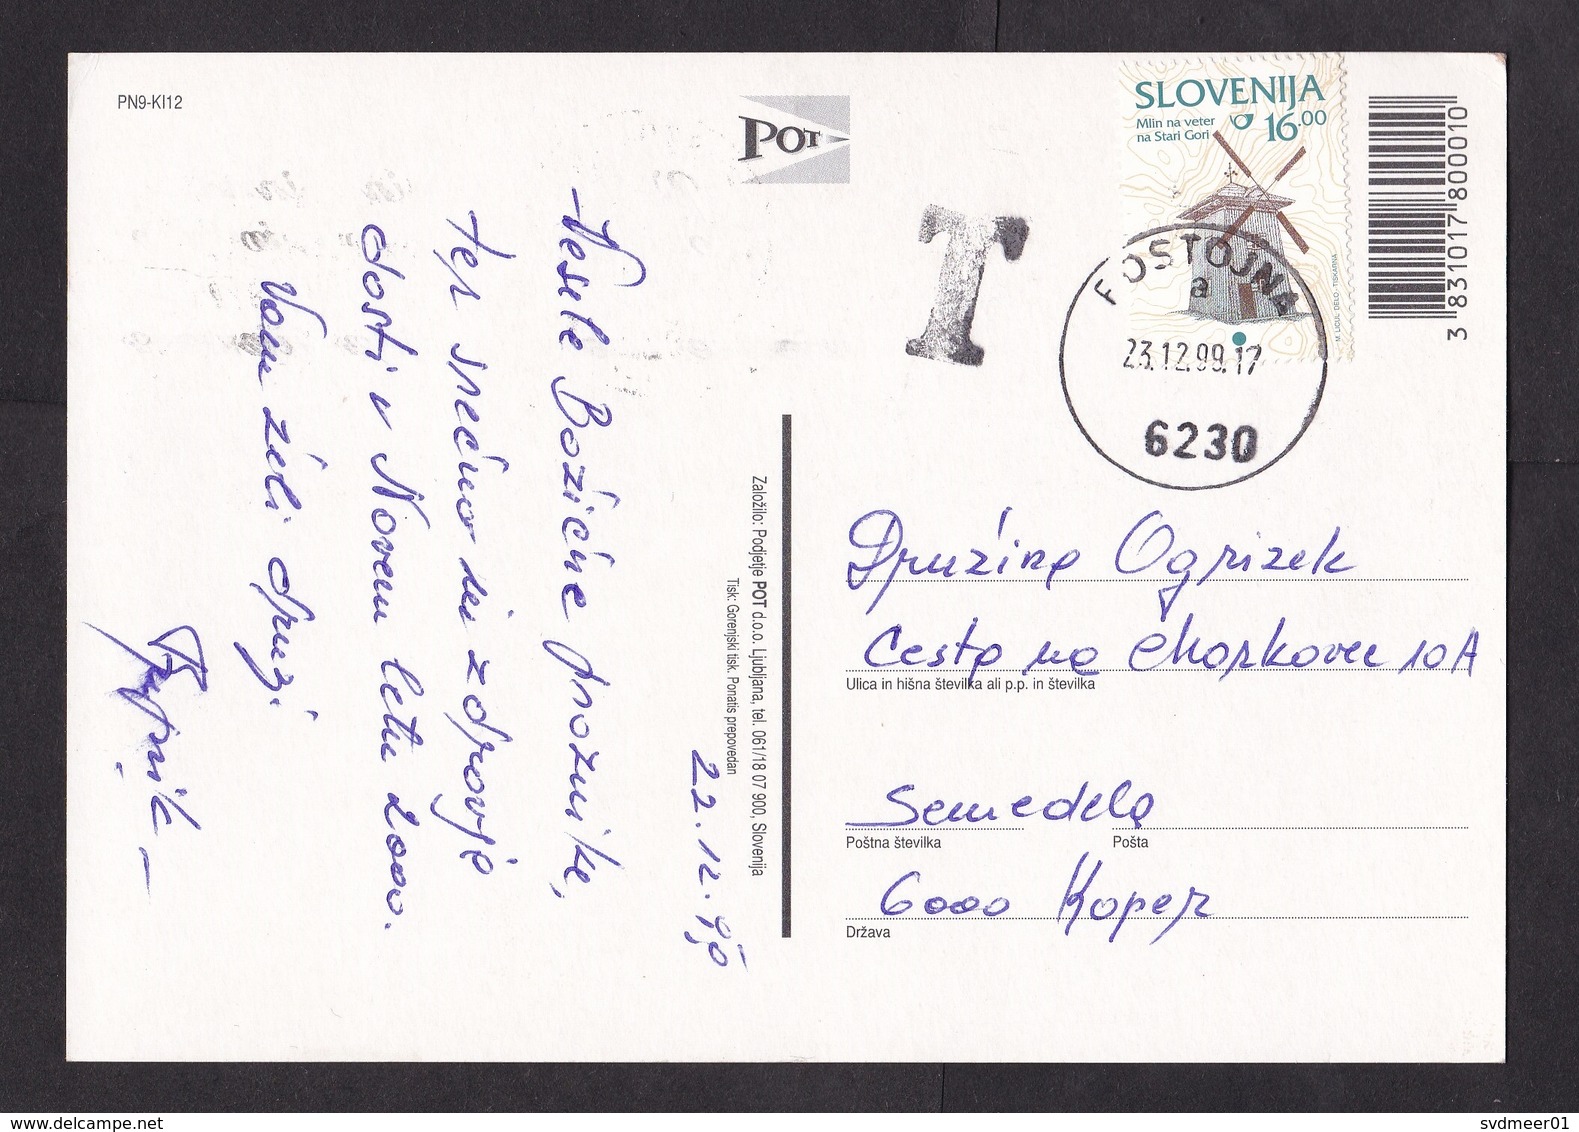 PN9-KI12
POT
SLOVENIJA
Mlin na veter
na Stari Gori
16.00
M. LICUL DELO - TISKARNA
3 831017 800010
T
POSTOJNA
a
23.12.99.17
6230
22.12.99
Vesele Božične praznike,
ter srečno in zdravja
dosti v Novem letu 2000.
Vam želi druž.
Založilo: Podjetje POT d.o.o. Ljubljana, tel. 061/18 07 900, Slovenija
Tisk: Gorenjski tisk. Ponatis prepovedan
Družina Ogrizek
Cesta na Markovec 10A
Ulica in hišna številka ali p.p. in številka
Semedela
Poštna številka Pošta
6000 Koper
Država
www.delcampe.net
svdmeer01